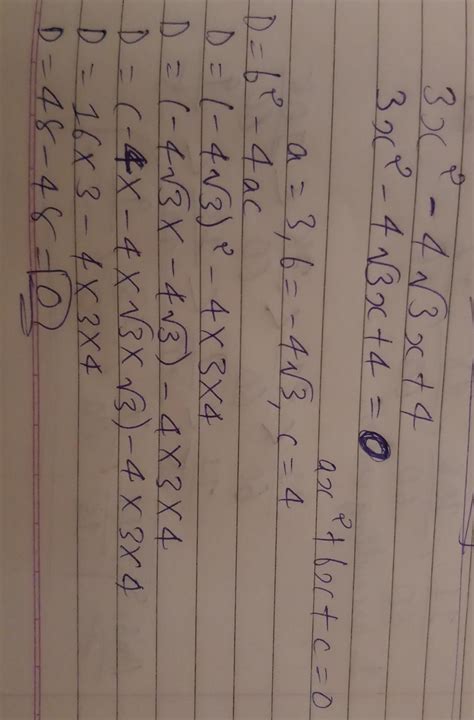 3x² - 4√3x + 4
3x² - 4√3x + 4 = 0
ax² + bx + c = 0
a = 3, b = -4√3, c = 4
D = b² - 4ac
D = (-4√3)² - 4×3×4
D = (-4√3 × -4√3) - 4×3×4
D = (-4× -4×√3×√3) - 4×3×4
D = 16×3 - 4×3×4
D = 48 - 48 = 0